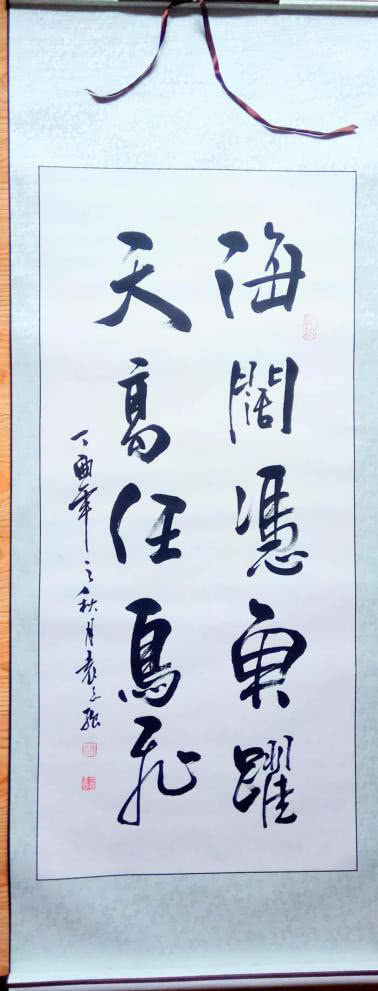 海闊憑魚躍
天高任鳥飛
丁酉年之秋月袁立強